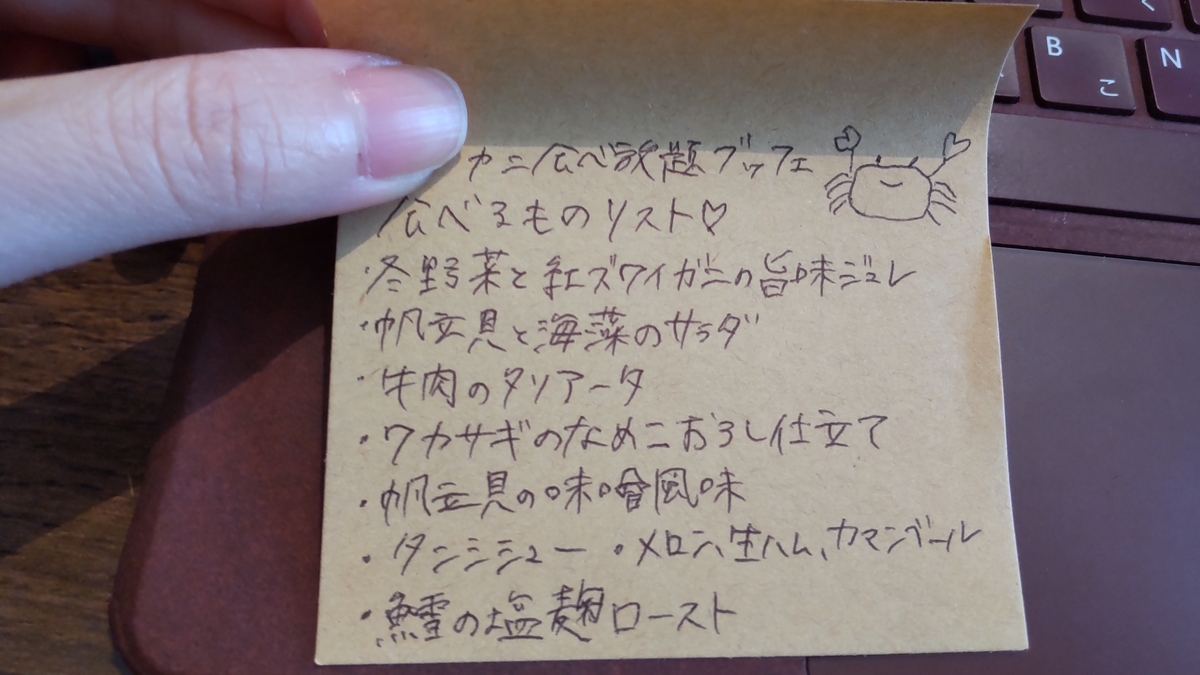 カニ食べ放題ブッフェ
食べるものリスト♡
・冬野菜と紅ズワイガニの旨味ジュレ
・帆立貝と海藻のサラダ
・牛肉のタリアータ
・ワカサギのなめこおろし仕立て
・帆立貝の味噌風味
・タンシチュー ・メロン、生ハム、カマンベール
・鱈の塩麹ロースト
B
こ
N
く